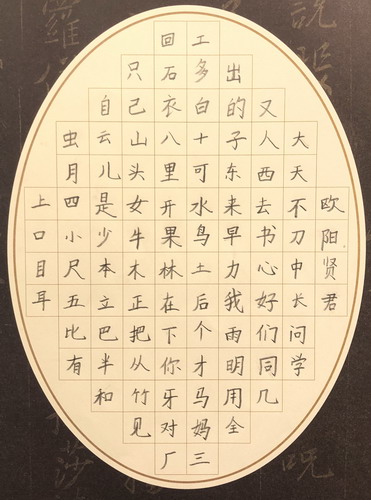 回工
只石多出
自己衣白的又
虫云山八十子人大
月儿头里可东西天
上四是女开水来去不
口小少牛果鸟早书刀
目尺本木林土力心中
耳五立正在后我好长
比巴把下个雨们问
有半从你才明同学
和竹牙马用几
见对妈全
厂三
欧阳贤君